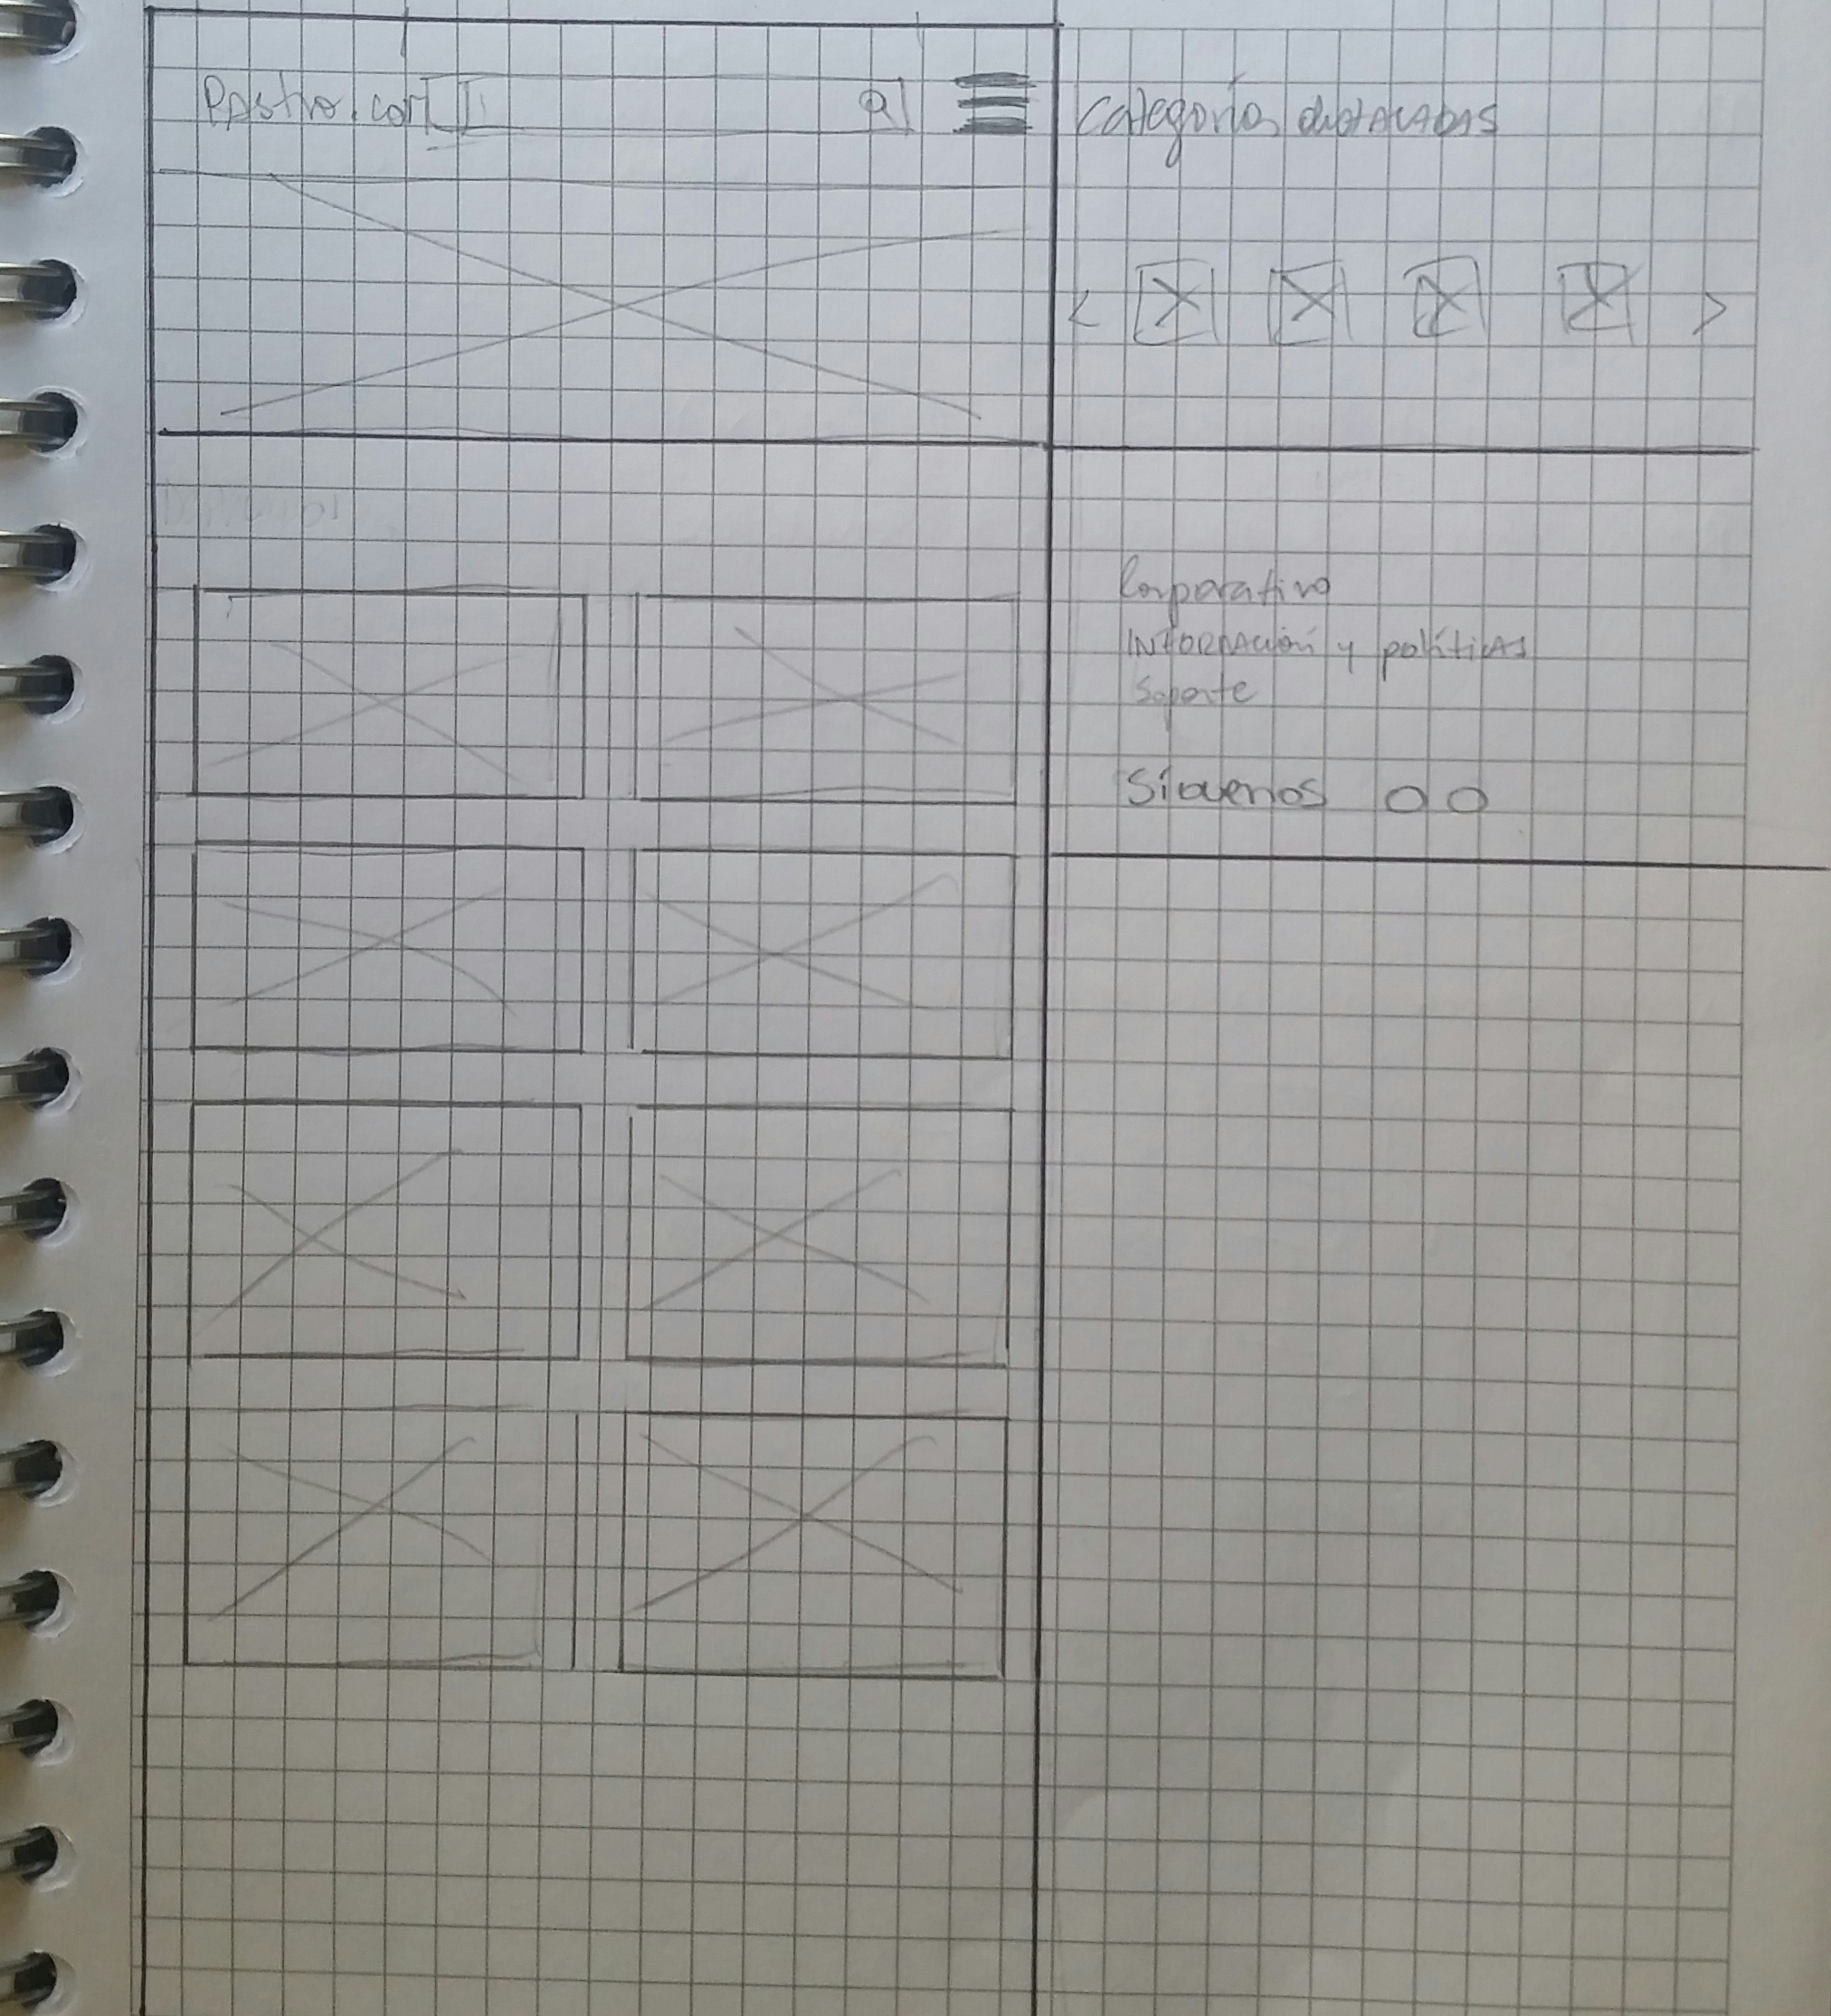 Rastro.com
Categorías destacadas
Corporativo
INFORMACIÓN y políticas
Soporte
Síguenos